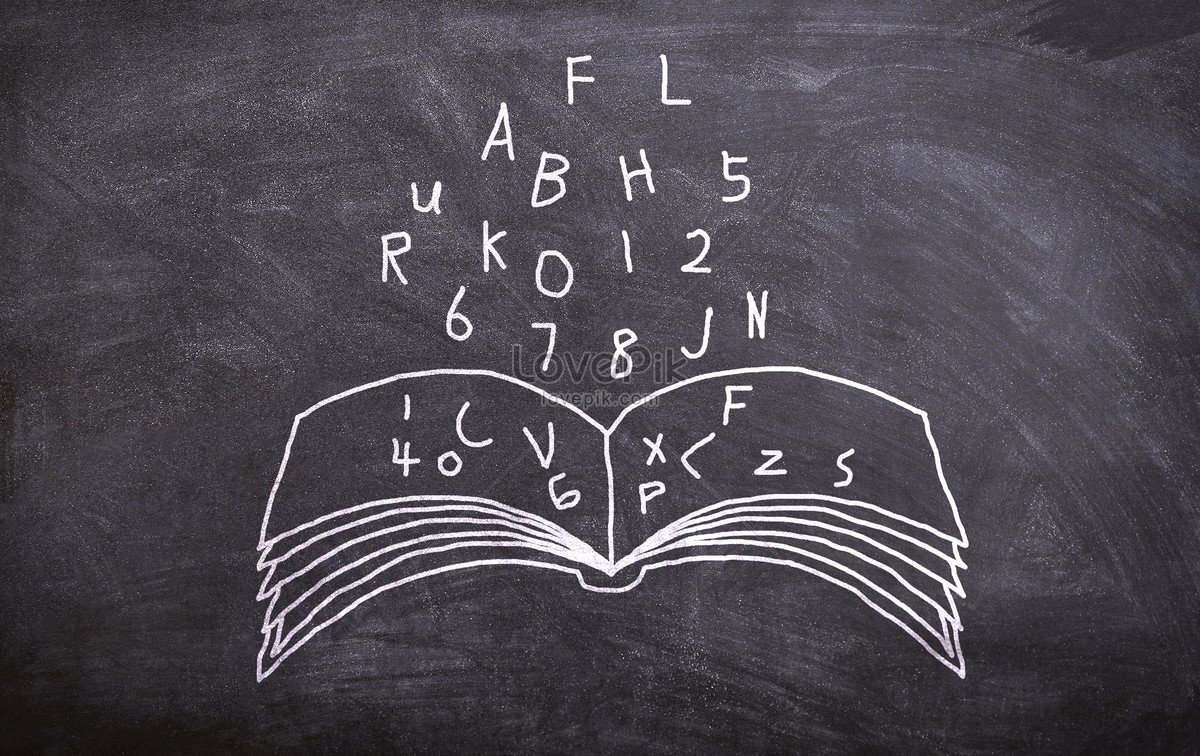 F L
A
B H 5
u
R K O 1 2
6 7 8 J N
LovePik
lovepik.com
F
1 C V X <
4 o z s
6 P